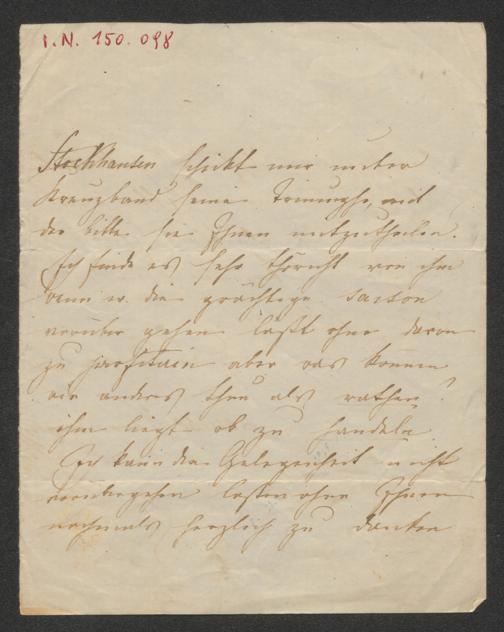 I.N. 150.098
Stockhausen schickt mir unter
Kreuzband seine Triumphe, mit
der Bitte sie Ihnen mitzutheilen.
Ich finde es sehr thöricht von ihm
wenn er die prächtige saison
vorüber gehen läßt ohne davon
zu profitiren aber was können
wir anders thun als rathen?
ihm liegt ob zu handeln.
Ich kann die Gelegenheit nicht
vorübergehen lassen ohne Ihnen
nochmals herzlich zu danken